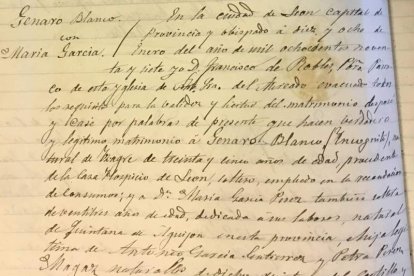 Genaro Blanco.
con
María García.
En la ciudad de León capital de
provincia y obispado á diez y ocho de
Enero del año de mil ochocientos noven-
ta y siete yo D. Francisco de Robles, Párro-
co de esta yglesia de del Mercado evacuado todos
los requisitos para la validez y licitud del matrimonio despose
y casé por palabras de presente que hacen verdadero
y legítimo matrimonio á Genaro Blanco (Incógnito), na-
tural de de treinta y cinco años de edad, procedente
de la Casa Hospicio de León, soltero, empleado en la recaudación
de Consumos; y a Dª María García Perez tambien soltera
de veintitres años de edad, dedicada a sus labores, natural
de Quintana de en esta provincia, hija legi-
tima de Antonio García Gutierrez y Petra Perez
naturales